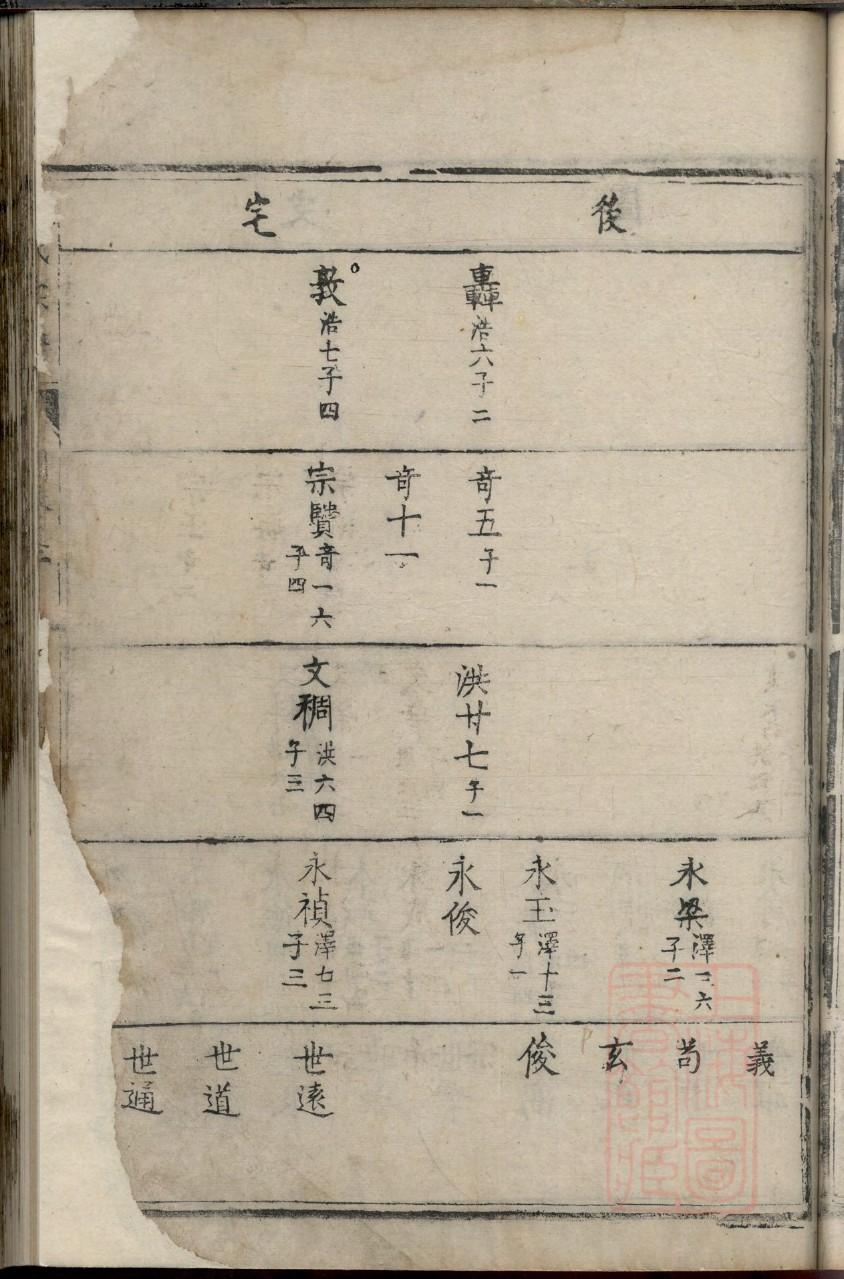 後宅
轟 浩六子二
敦 浩七子四
奇五 子一
奇十一
宗贒 奇一六 子四
洪廿七 子一
文稠 洪六四 子三
永梁 澤三六 子二
永玉 澤十三 子一
永俊
永禎 澤七三 子三
義
苟
玄
俊
世遠
世道
世通
上海圖書館藏